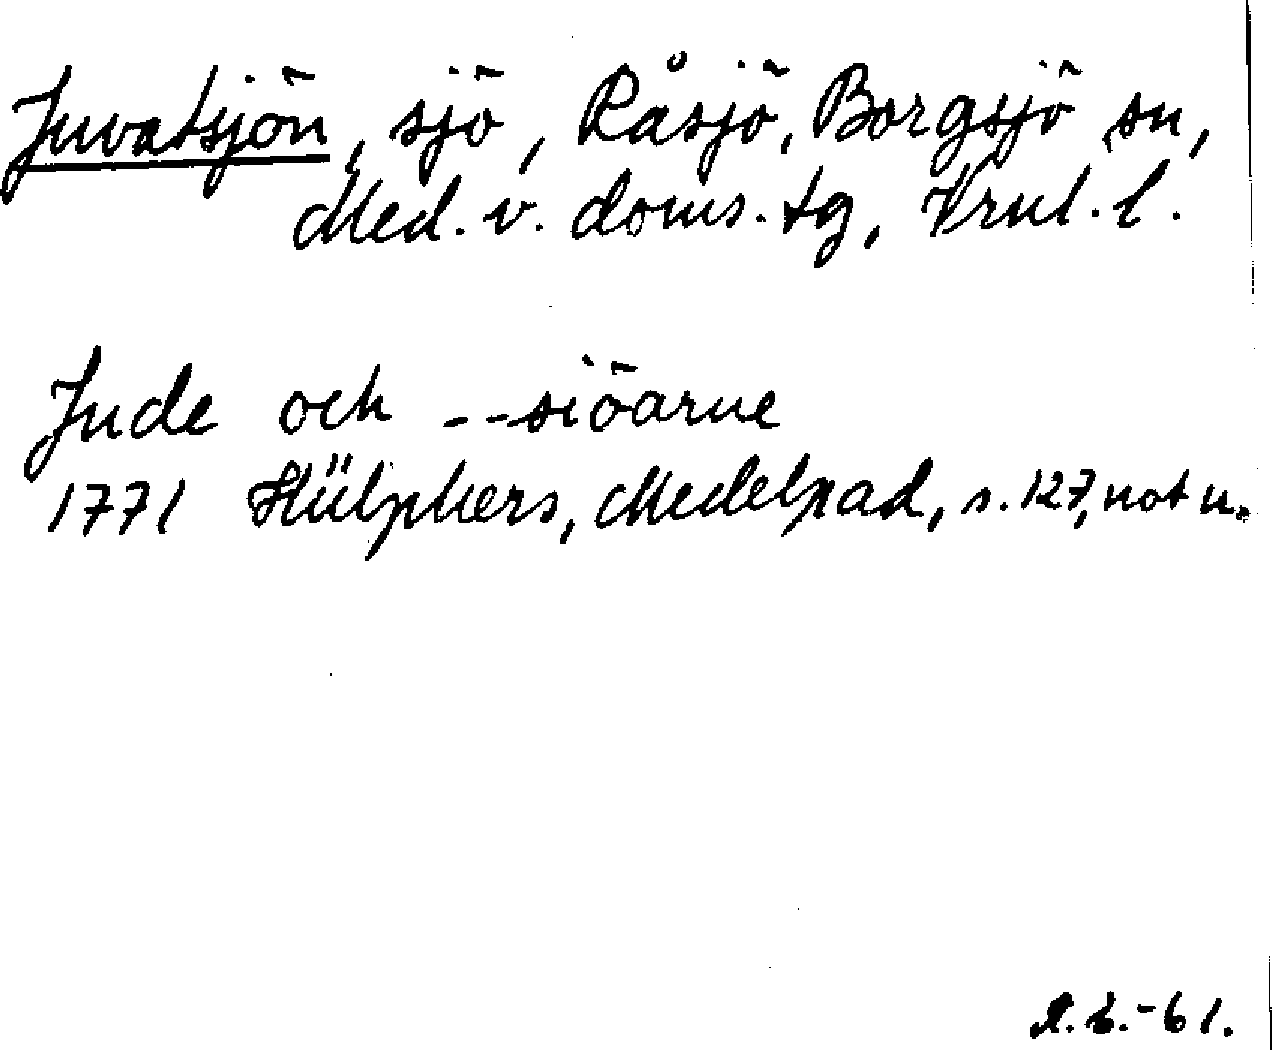 Juvatsjön, sjö, Råsjö, Borgsjö sn,
Med. v. doms. tg, Vrnl. l.
Jude och --siöarne
1771 Hülphers, Medelpad, s. 127, not n.